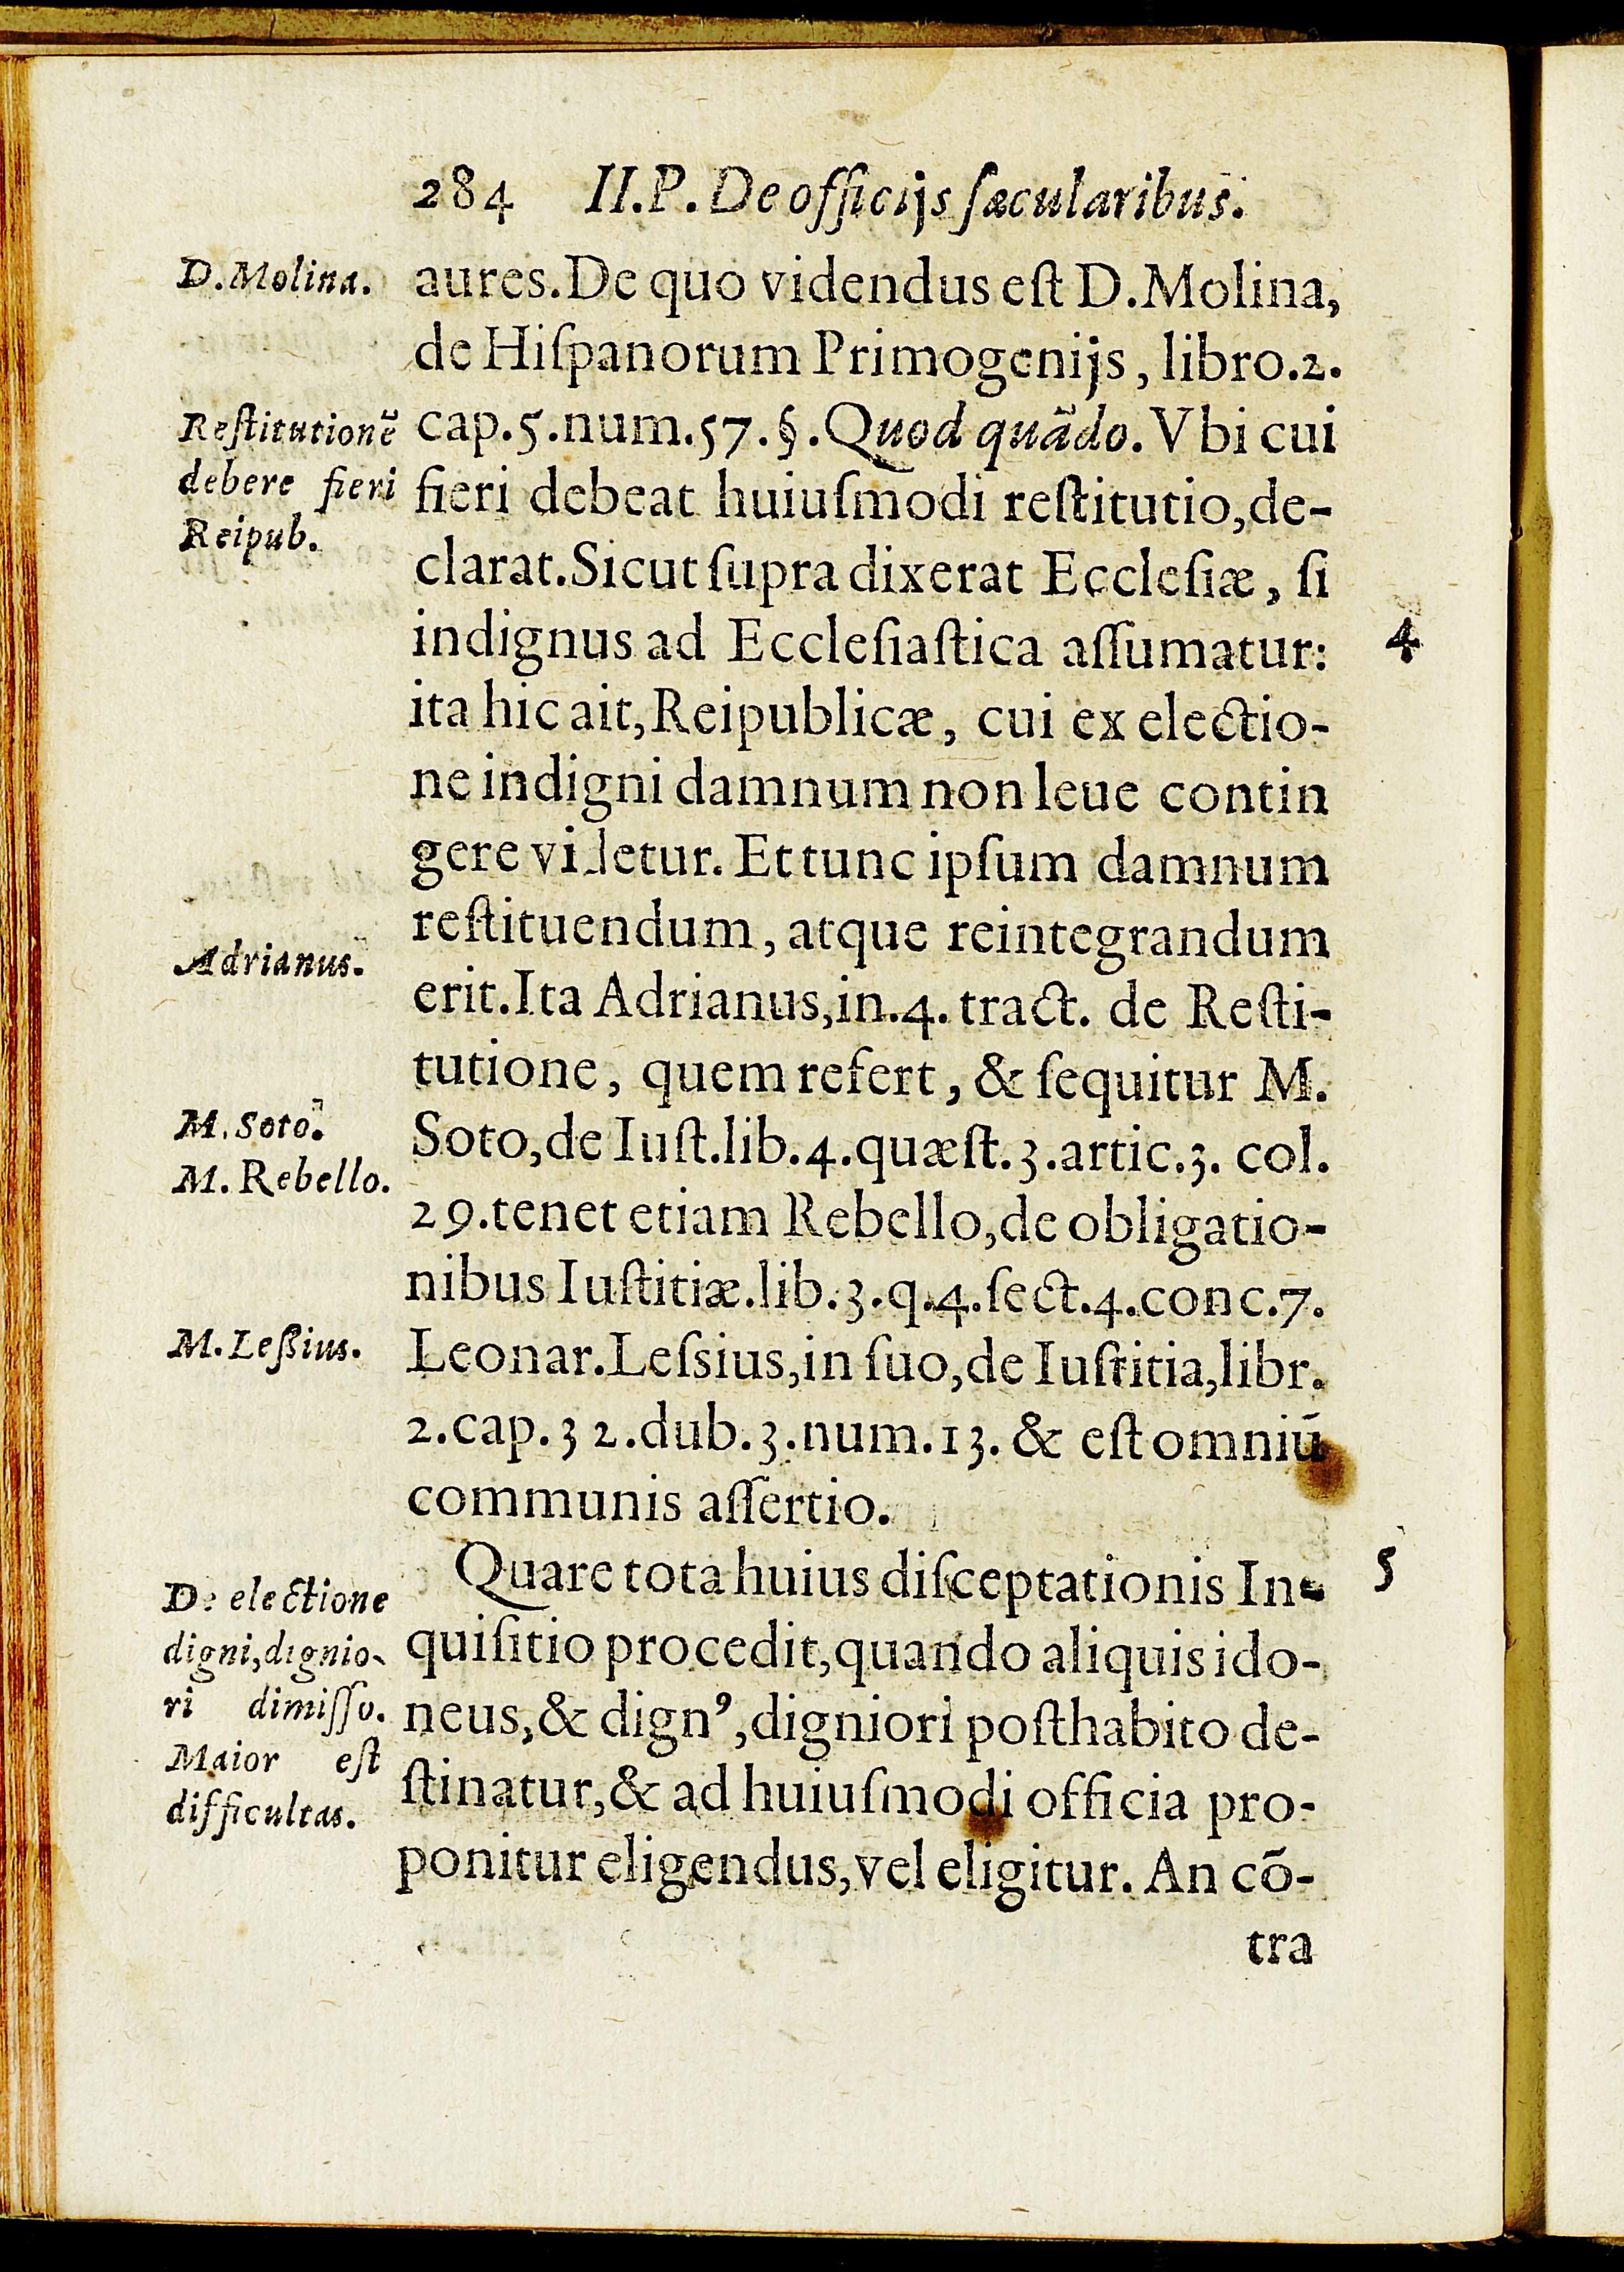 284 II.P. De officijs sæcularibus.
D.Molina.
aures. De quo videndus eſt D.Molina,
de Hiſpanorum Primogenijs, libro.2.
cap.5.num.57.§.Quod quãdo. Vbi cui
fieri debeat huiuſmodi reſtitutio, de-
clarat. Sicut ſupra dixerat Eccleſiæ, ſi
indignus ad Eccleſiaſtica aſſumatur:
ita hic ait, Reipublicæ, cui ex electio-
ne indigni damnum non leue contin
gere videtur. Et tunc ipſum damnum
reſtituendum, atque reintegrandum
erit. Ita Adrianus, in.4. tract. de Reſti-
tutione, quem refert, & ſequitur M.
Soto, de Iuſt.lib.4.quæſt.3.artic.3. col.
29.tenet etiam Rebello, de obligatio-
nibus Iuſtitiæ.lib.3.q.4.ſect.4.conc.7.
Leonar.Leſsius, in ſuo, de Iuſtitia, libr.
2.cap.32.dub.3.num.13. & eſt omniũ
communis aſſertio.
Quare tota huius diſceptationis In-
quiſitio procedit, quando aliquis ido-
neus, & dignꝰ, digniori poſthabito de-
ſtinatur, & ad huiuſmodi officia pro-
ponitur eligendus, vel eligitur. An cõ-
tra
Reſtitutionẽ
debere fieri
Reipub.
Adrianus.
M. Soto.
M. Rebello.
M. Leßius.
De electione
digni, dignio-
ri dimiſſo.
Maior eſt
difficultas.
4
5